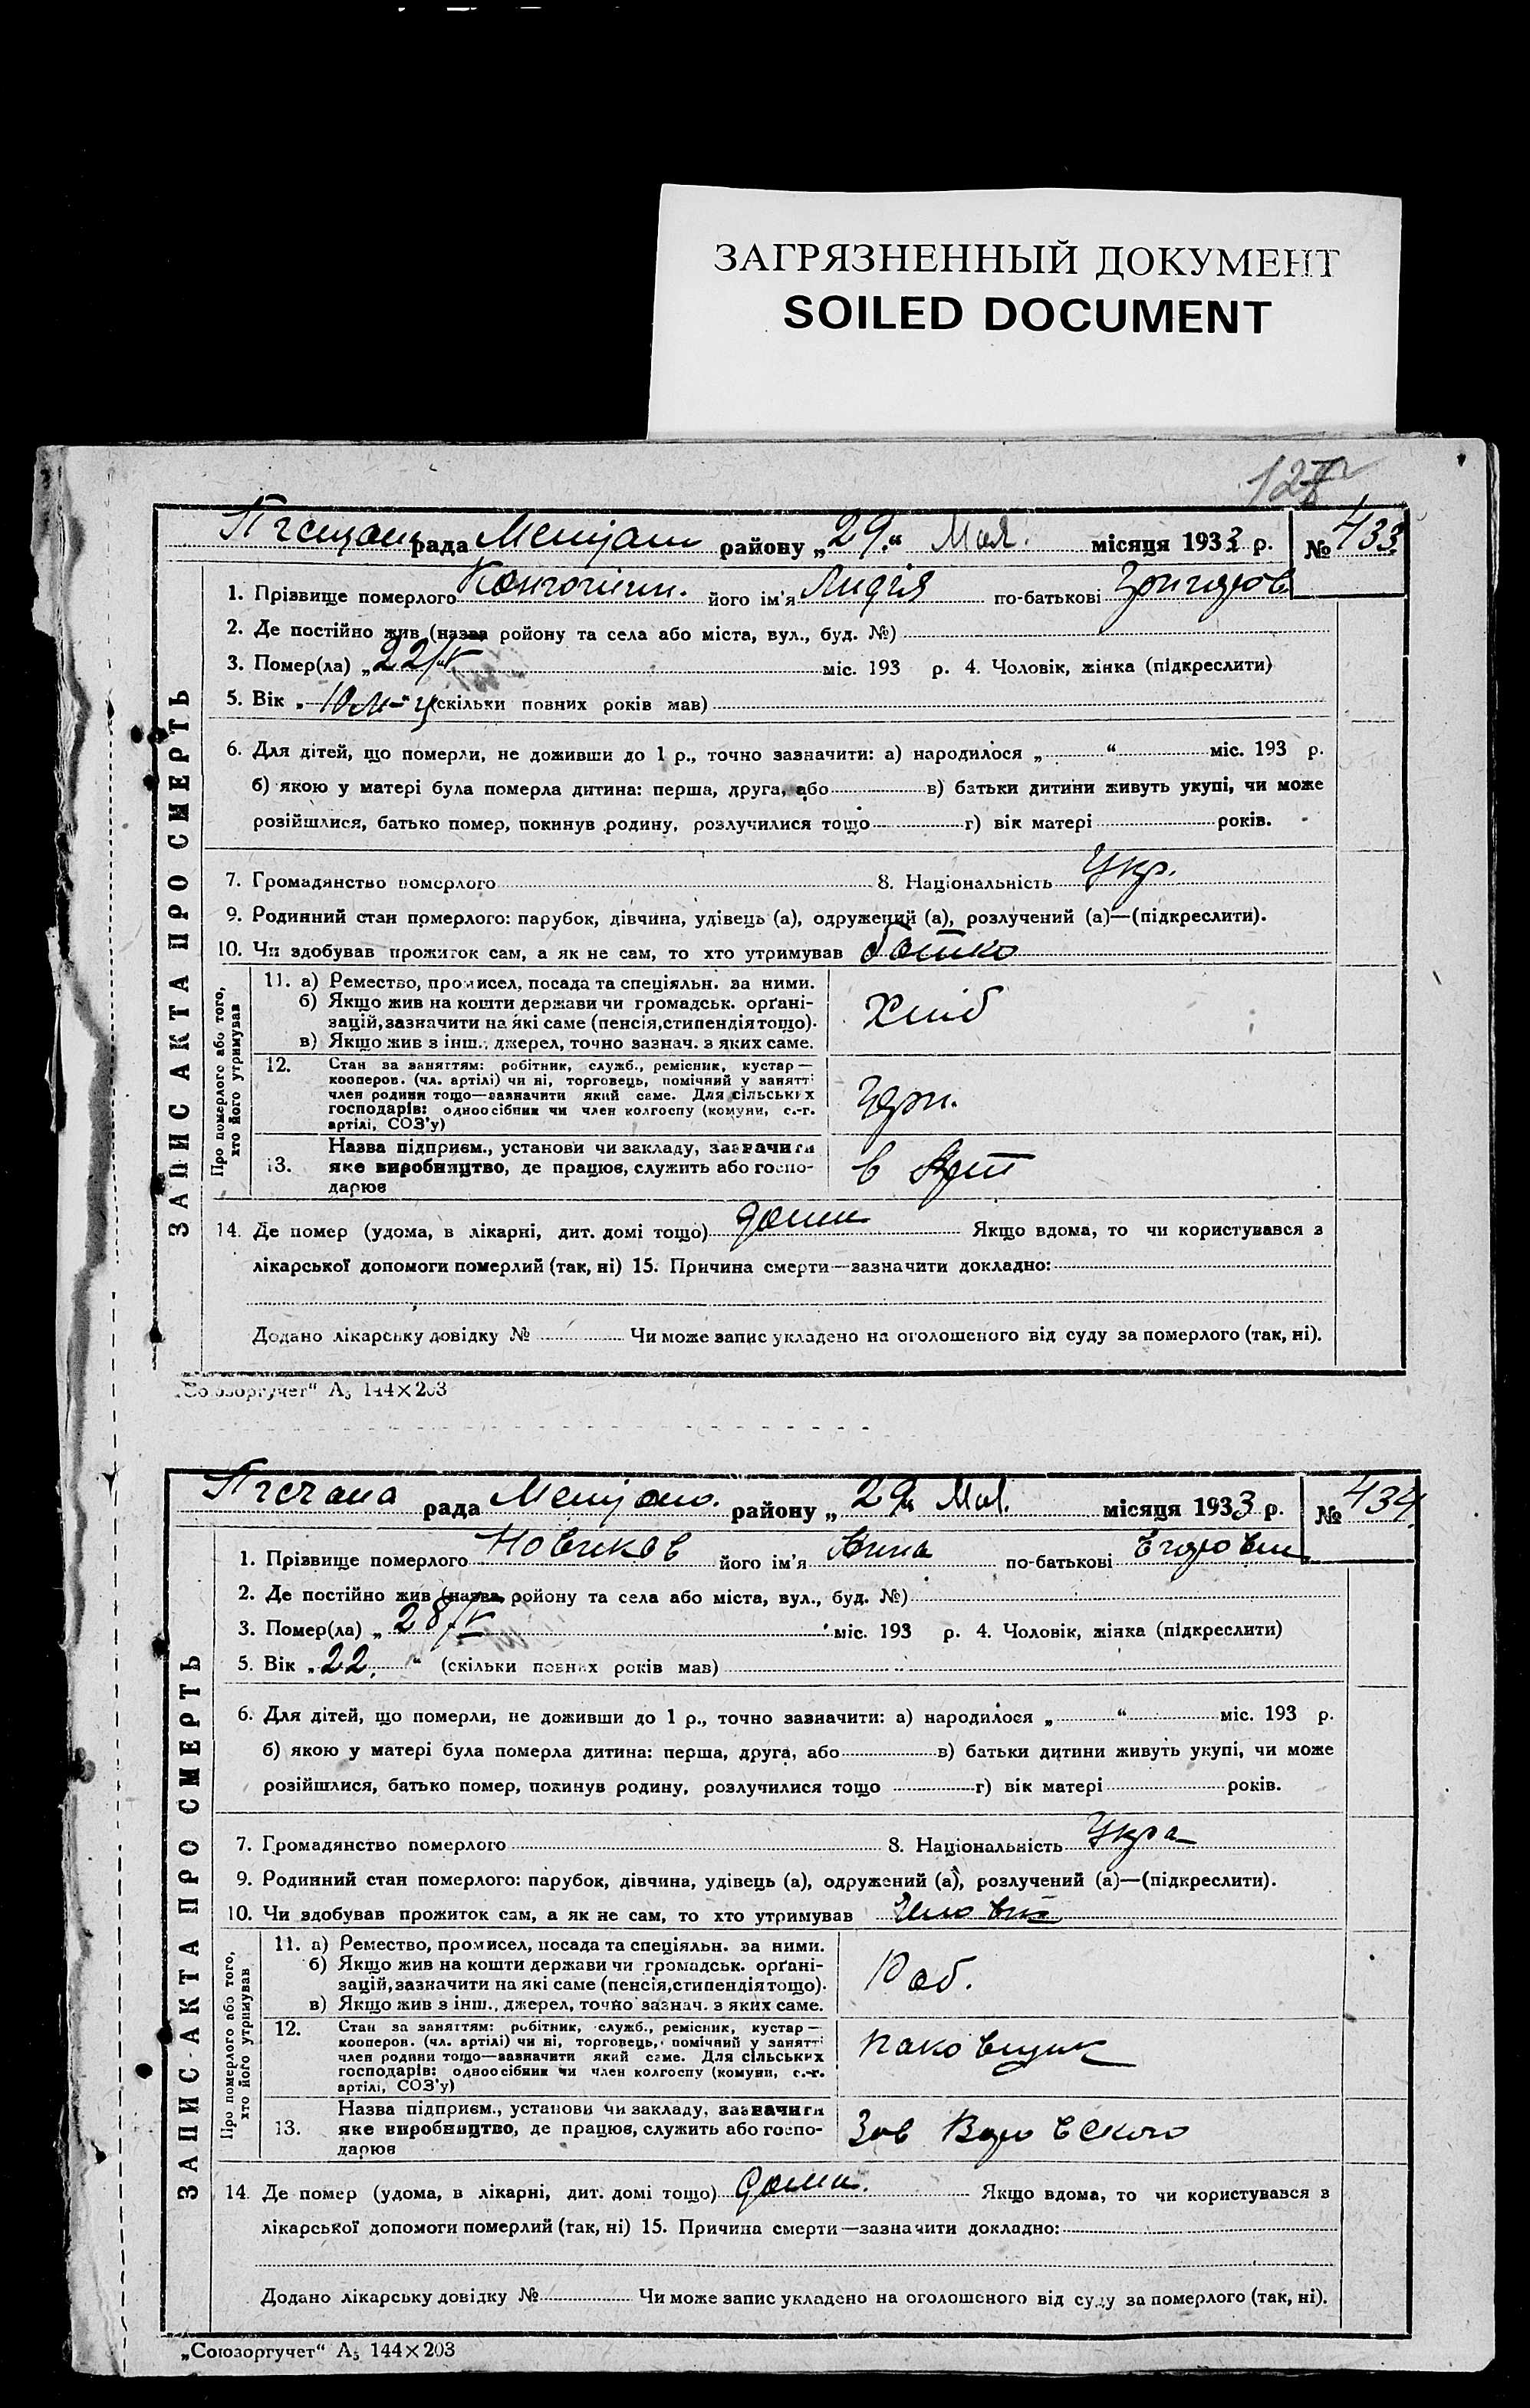 ЗАГРЯЗНЕННЫЙ ДОКУМЕНТ
SOILED DOCUMENT
рада району „29.“ Мая. місяця 1933 р. № 433
1. Прізвище померлого його ім'я Лидія по-батькові
2. Де постійно жив (назва району та села або міста, вул., буд. №)
3. Помер(ла) „22/V міс. 193 р. 4. Чоловік, жінка (підкреслити)
5. Вік „10 м-ц (скільки повних років мав)
6. Для дітей, що померли, не доживши до 1 р., точно зазначити: а) народилося „ “ міс. 193 р.
б) якою у матері була померла дитина: перша, друга, або в) батьки дитини живуть укупі, чи може
розійшлися, батько помер, покинув родину, розлучилися тощо г) вік матері років.
7. Громадянство померлого 8. Національність Укр.
9. Родинний стан померлого: парубок, дівчина, удівець (а), одружений (а), розлучений (а)—(підкреслити).
10. Чи здобував прожиток сам, а як не сам, то хто утримував батько
Про померлого або того, хто його утримував
11. а) Ремество, промисел, посада та спеціяльн. за ними.
б) Якщо жив на кошти держави чи громадськ. орґані-
зацій, зазначити на які саме (пенсія, стипендія тощо).
в) Якщо жив з інш., джерел, точно зазнач. з яких саме.
Хліб
12. Стан за заняттям: робітник, служб., ремісник, кустар—
кооперов. (чл. артілі) чи ні, торговець, помічний у занятті
член родини тощо—зазначити який саме. Для сільських
господарів: одноосібник чи член колгоспу (комуни, с.-г.
артілі, СОЗ'у)
13. Назва підприєм., установи чи закладу, зазначити
яке виробництво, де працює, служить або госпо-
дарює
14. Де помер (удома, в лікарні, дит. домі тощо) доми Якщо вдома, то чи користувався з
лікарської допомоги померлий (так, ні) 15. Причина смерти—зазначити докладно:
Додано лікарську довідку № Чи може запис укладено на оголошеного від суду за померлого (так, ні).
ЗАПИС АКТА ПРО СМЕРТЬ
„Союзоргучет“ А5 144×203
рада району „29 Мая. місяця 1933 р. № 434
1. Прізвище померлого Новиков його ім'я Анна по-батькові
2. Де постійно жив (назва району та села або міста, вул., буд. №)
3. Помер(ла) „28/V міс. 193 р. 4. Чоловік, жінка (підкреслити)
5. Вік „22. “ (скільки повних років мав)
6. Для дітей, що померли, не доживши до 1 р., точно зазначити: а) народилося „ “ міс. 193 р.
б) якою у матері була померла дитина: перша, друга, або в) батьки дитини живуть укупі, чи може
розійшлися, батько помер, покинув родину, розлучилися тощо г) вік матері років.
7. Громадянство померлого 8. Національність Укра
9. Родинний стан померлого: парубок, дівчина, удівець (а), одружений (а), розлучений (а)—(підкреслити).
10. Чи здобував прожиток сам, а як не сам, то хто утримував
Про померлого або того, хто його утримував
11. а) Ремество, промисел, посада та спеціяльн. за ними.
б) Якщо жив на кошти держави чи громадськ. орґані-
зацій, зазначити на які саме (пенсія, стипендія тощо).
в) Якщо жив з інш., джерел, точно зазнач. з яких саме.
Роб.
12. Стан за заняттям: робітник, служб., ремісник, кустар—
кооперов. (чл. артілі) чи ні, торговець, помічний у занятті
член родини тощо—зазначити який саме. Для сільських
господарів: одноосібник чи член колгоспу (комуни, с.-г.
артілі, СОЗ'у)
паковщик
13. Назва підприєм., установи чи закладу, зазначити
яке виробництво, де працює, служить або госпо-
дарює
14. Де помер (удома, в лікарні, дит. домі тощо) доми. Якщо вдома, то чи користувався з
лікарської допомоги померлий (так, ні) 15. Причина смерти—зазначити докладно:
Додано лікарську довідку № Чи може запис укладено на оголошеного від суду за померлого (так, ні).
ЗАПИС АКТА ПРО СМЕРТЬ
„Союзоргучет“ А5 144×203